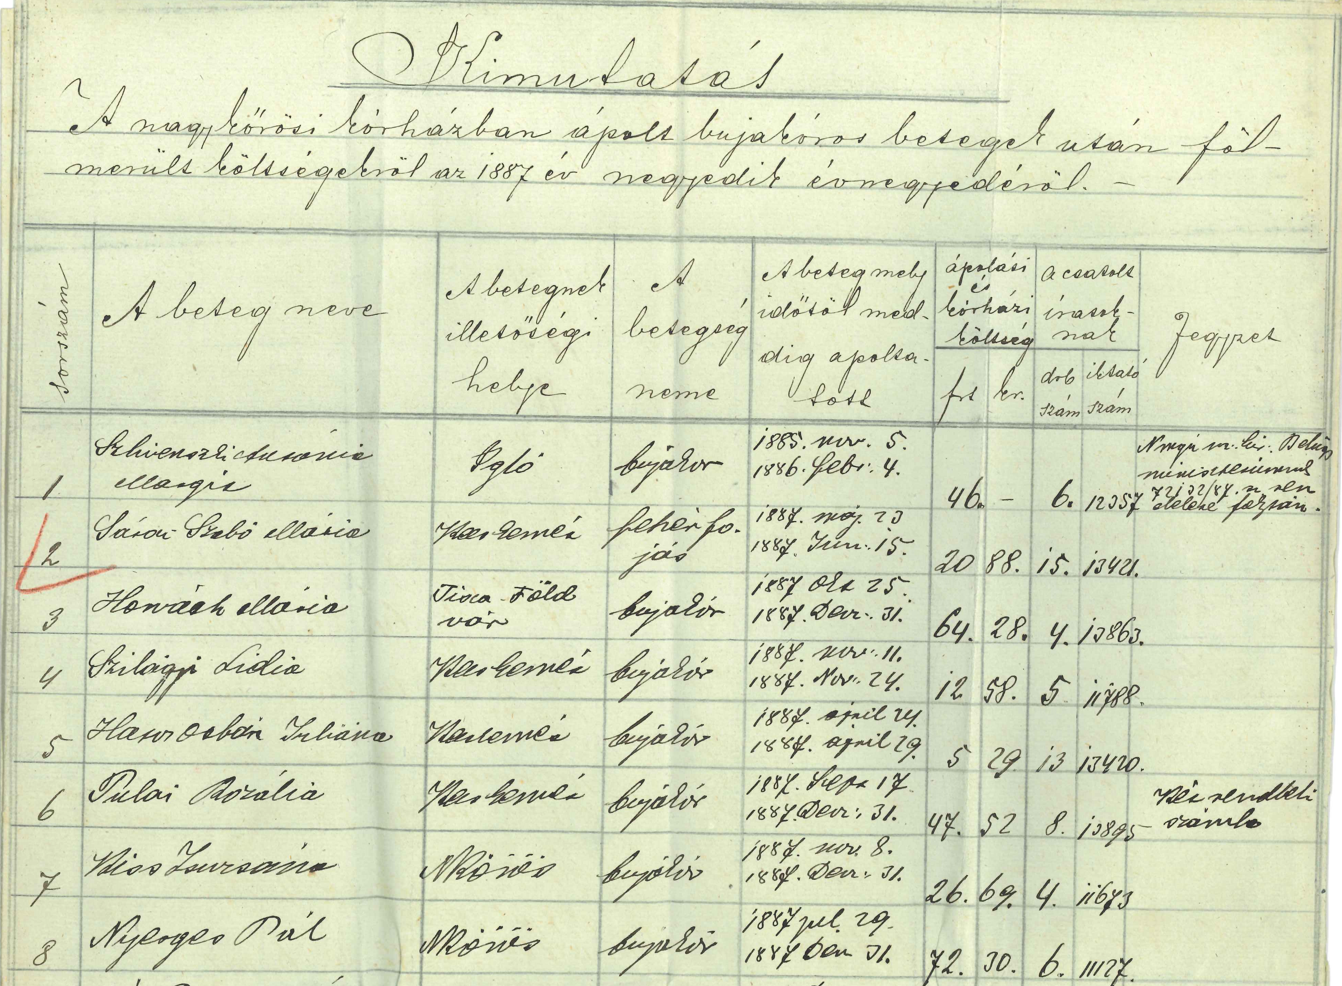 Kimutatás
A nagykőrösi kórházban ápolt bujakóros betegek után föl-
merült költségekről az 1887 év negyedik évnegyedéről. –
sorszám
A beteg neve
A betegnek
illetőségi
helye
A
betegség
neme
A beteg mely
időtől med-
dig apolta-
tott
ápolási
és
kórházi
költség
frt kr.
a csatolt
írasok-
nak
drb iktató
szám szám
Jegyzet
1 Margit Igló bujakor 1885. nov. 5. 1886. febr. 4. 46. – 6. 12357
2 Sásow Szabó Mária Kecskemét fehérfo-
jás 1887. máj. 23 1887. Jun. 15. 20 88. 15. 13421.
3 Horváth Mária Tisza-Föld
vár bujakór 1887 Okt 25. 1887. Decz. 31. 64. 28. 4. 13863.
4 Szilágyi Lidia Kecskemét bujakór 1887. nov. 11. 1887. Nov. 24. 12 58. 5 11788.
5 Juliána Kecskemét bujakór 1887. april 24. 1887. april 29. 5 29 13 13420.
6 Pulai Rozália Kecskemét bujakór 1887. Sept 17 1887. Decz. 31. 47. 52 8. 13895 Két rendbeli
számla
7 Kiss Zsuzsána NKőrös bujakór 1887. nov. 8. 1887. Decz. 31. 26. 69. 4. 11673
8 Nyerges Pál NKőrös bujakór 1887 jul. 29. 1887 Dec 31. 72. 30. 6. 11127.